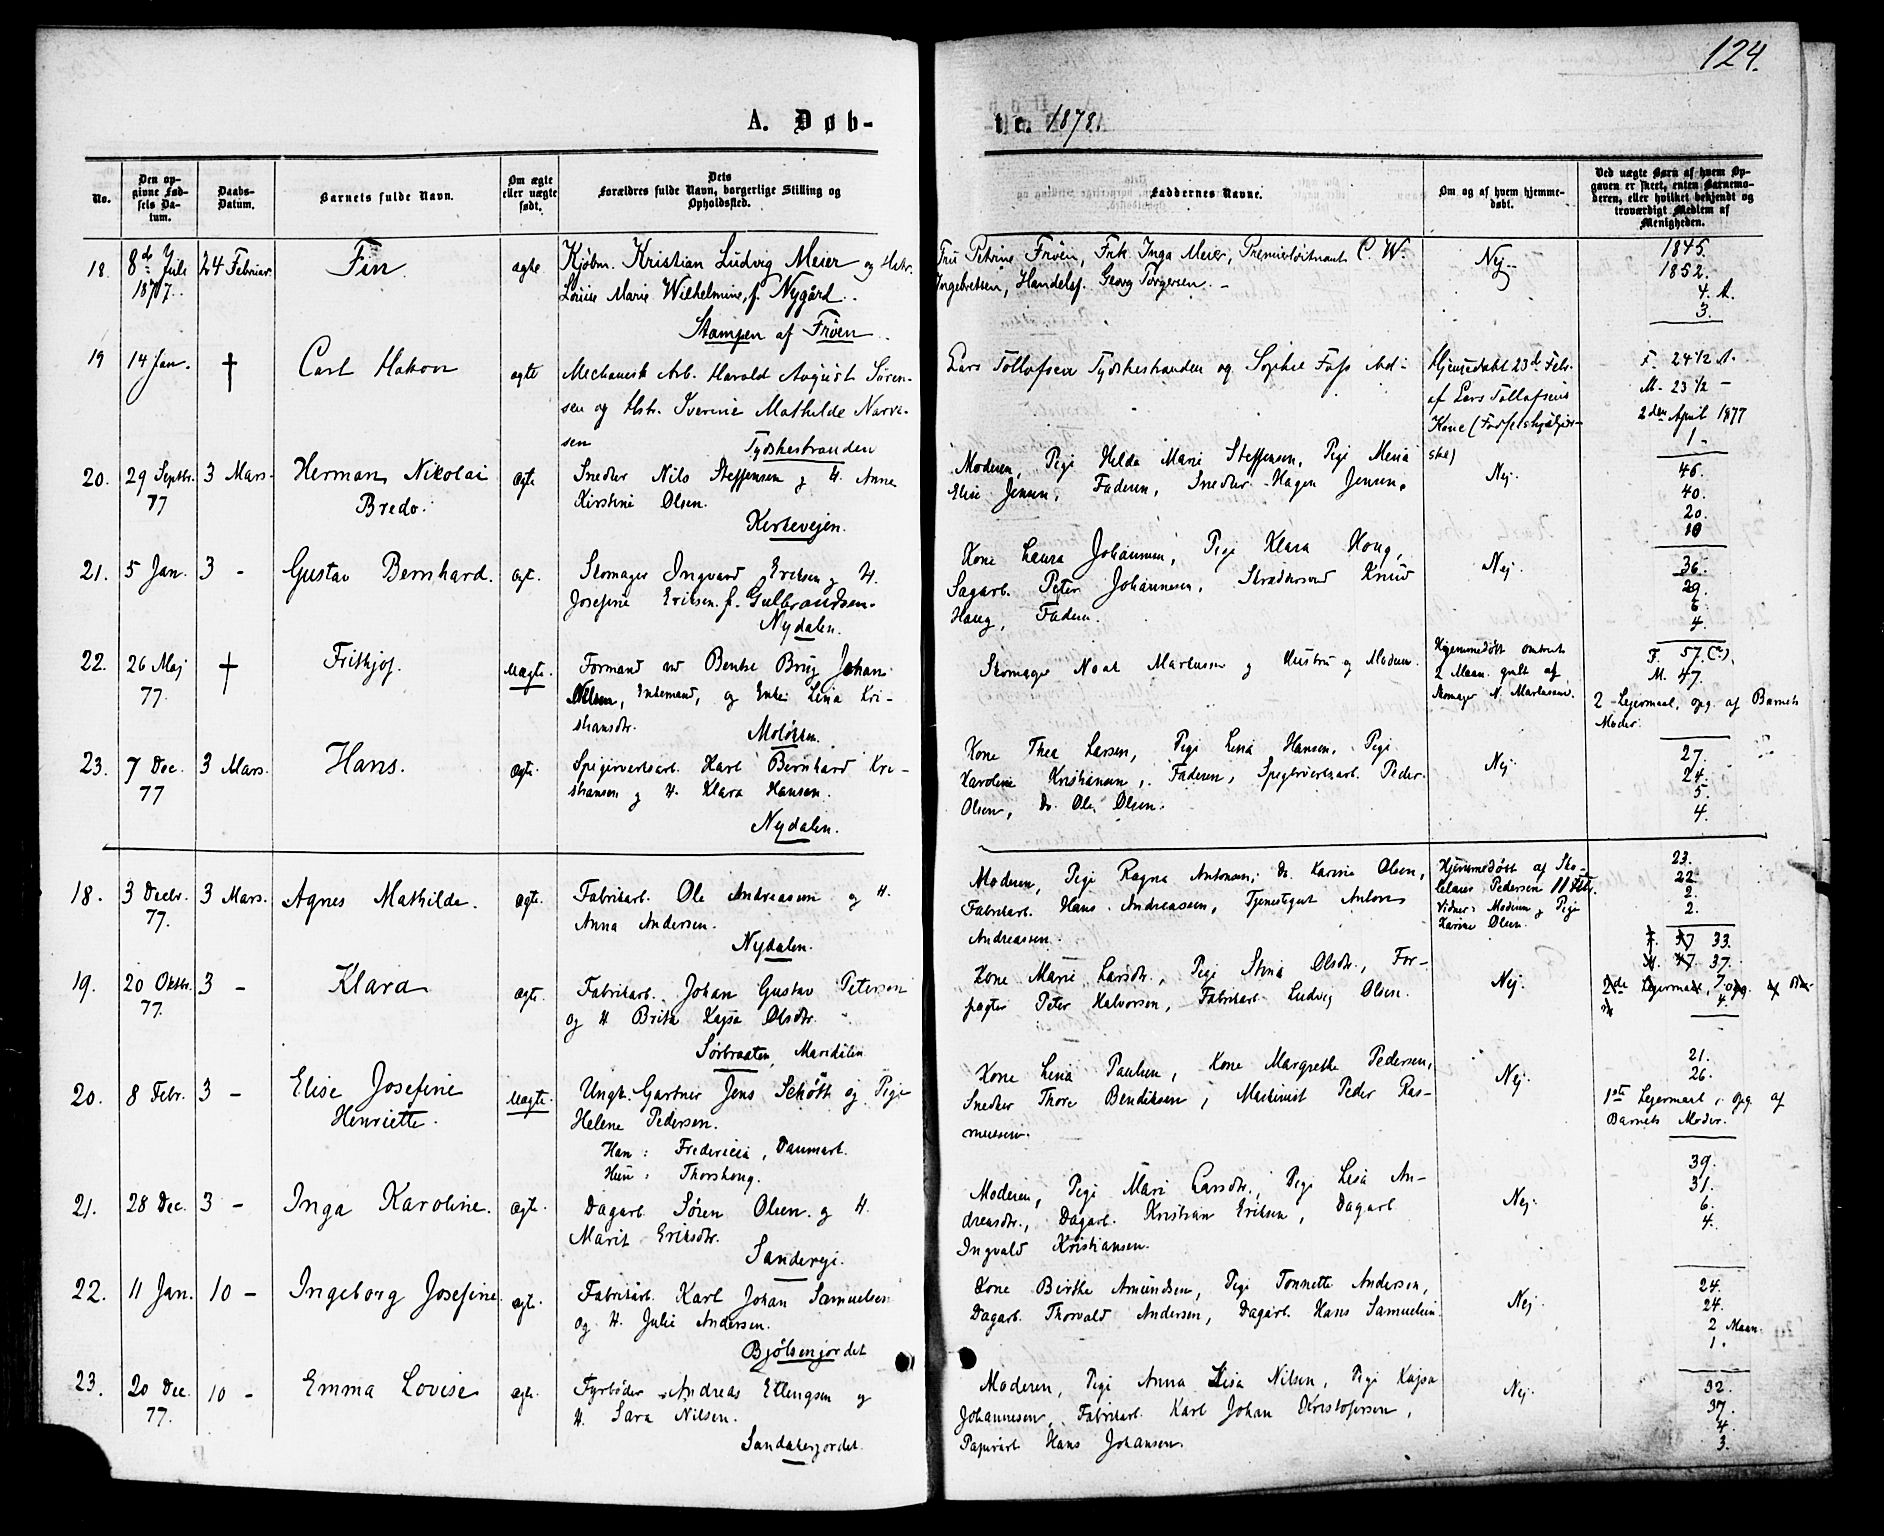 124.
A. Døb-
te. 1878.
No.
Den op-
givne Fød-
sels Da-
tum.
Daabs-
Datum.
Barnets fulde Navn.
Om ægte
eller uægte
født.
Dets
Forældres fulde Navn, borgerlige Stilling og
Opholdssted.
Faddernes Navne.
Om og af hvem hjemme-
døbt.
Ved uægte Børn af hvem Op-
gaven er skeet, enten Barnemo-
deren, eller hvilket bekjendt og
troværdigt Medlem af
Menigheden.
18.
8de Juli
1877.
24 Februar.
Fin.
ægte
Kjøbm. Kristian Ludvig Meier og Hstr.
Louise Marie Wilhelmine, f. Nygård.
Stampen af Frøen
Fru Petrine Frøen, Frk. Inga Meier, Premierløitnant C. W.
Ingebretsen, Handelsf. Georg Torgersen.
Nej.
1845.
1852.
4.
3.
19
14 Jan.
†
Carl Hakon
ægte
Mechanisk Arb. Harold August Søren-
sen og Hstr. Iverine Mathilde Narve-
sen
Tydskestranden
Lars Tollofsen Tydskestranden og Sophie
Hjemmedøbt 23de Feb.
af Lars Tollofsens
Kone (Fødselshjælper-
ske)
F. 24 1/2
M. 23 1/2 -
2den April 1877
1 -
20.
29 Septbr.
77
3 Mars.
Herman Nikolai
Bredo.
ægte
Snedker Nils Steffensen og H. Anne
Kirstine Olsen.
Kirkevejen.
Moderen, Pige Helda Marie Steffensen, Pige
Elise Jensen, Faderen, Snedker Hagen Jensen.
Nej.
46.
40.
20.
10
21.
5 Jan.
3 -
Gustav Bernhard.
ægt.
Skomager Ingvard Eriksen og H.
Josefine Eriksen f. Gulbrandsen.
Nydalen.
Kone Laura Johannesen, Pige Klara Houg,
Sagarb. Peter Johannesen, Knud
Haug, Faderen.
Nej.
36.
29.
6.
4.
22.
26 Maj
77.
†
Frithjof.
uægte.
Formand ved Bentse Brug Johan
Nilsen, Enkemand, og Enke Lina Kri-
stiansdtr.
Moløkken.
Skomager Noak Markussen og Hustru og Moderen.
Hjemmedøbt omtrent
2 Maan. gmlt af
Skomager N. Markussen.
F. 57.
M. 47.
2 - Lejermaal, opg. af Barnets
Moder.
23.
7 Dec.
77
3 Mars.
Hans.
ægte.
Spigerverksarb. Karl Bernhard Kri-
stiansen og H. Klara Hansen.
Nydalen.
Kone Thea Larsen, Pige Lina Hansen, Pige
Karoline Kristiansen, Faderen, Spigerverksarb. Peder
Olsen, Do. Ole Olsen.
Nej.
27.
24.
5.
4.
18.
3 Decbr.
77.
3 Mars.
Agnes Mathilde.
ægte.
Fabrikarb. Ole Andreassen og H.
Anna Andersen.
Nydalen.
Moderen, Pige Ragna Antonsen, Do. Karine Olsen,
Fabrikarb. Hans Andreassen, Tjenestegut Anton
Andreassen.
Hjemmedøbt af Sko-
Pedersen 11 Feb.
Vidner: Moderen og Pige
Karine Olsen.
23.
22
2.
2.
19.
20 Oktbr.
77.
3 -
Klara
ægte.
Fabrikarb. Johan Gustav Peterson
og H. Brita Kajsa Olsdtr.
Sørbraaten, Maridalen
Kone Marie Larsdtr., Pige Stina Olsdtr., For-
pagter Peter Halvorsen, Fabrikarb. Ludvig Olsen.
Nej.
33.
37.
7.
4.
20.
8 Febr.
3 -
Elise Josefine
Henriette.
uægte.
Ungk. Gartner Jens Schøtt og Pige
Helene Pedersen.
Han: Fredericia, Danmark.
Hun: Thorshoug.
Kone Lina Paulsen, Kone Margrethe Pedersen,
Snedker Thore Bendiksen, Maskinist Peder Ras-
mussen.
Nej.
21.
26.
1ste Lejermaal, opg. af
Barnets Moder.
21.
28 Dec.
3 -
Inga Karoline.
ægte.
Dagarb. Søren Olsen og H.
Marit Eriksdtr.
Sandervejen.
Moderen, Pige Mari Larsdtr., Pige Lisa An-
dreasdtr., Dagarb. Kristian Eriksen, Dagarb.
Ingvald Kristiansen.
Nej.
39.
31.
6.
4.
22.
11 Jan.
10 -
Ingeborg Josefine
ægte.
Fabrikarb. Karl Johan Samuelsen
og H. Julie Andersen.
Bjølsenjordet
Kone Birthe Amundsen, Pige Tonnette Andersen,
Dagarb. Thorvald Andersen, Dagarb. Hans Samuelsen
Nej.
24.
24.
2 Maan.
1.
23.
20 Dec.
77.
10 -
Emma Lovise
ægte.
Fyrbøder Andreas Ellingsen og
H. Sara Nilsen.
Sandakerjordet.
Moderen, Pige Anna Lisa Nilsen, Pige Kajsa
Johannesen, Fabrikarb. Karl Johan Kristofersen,
Papirarb. Hans Johansen.
Nej.
32.
37.
4.
3.